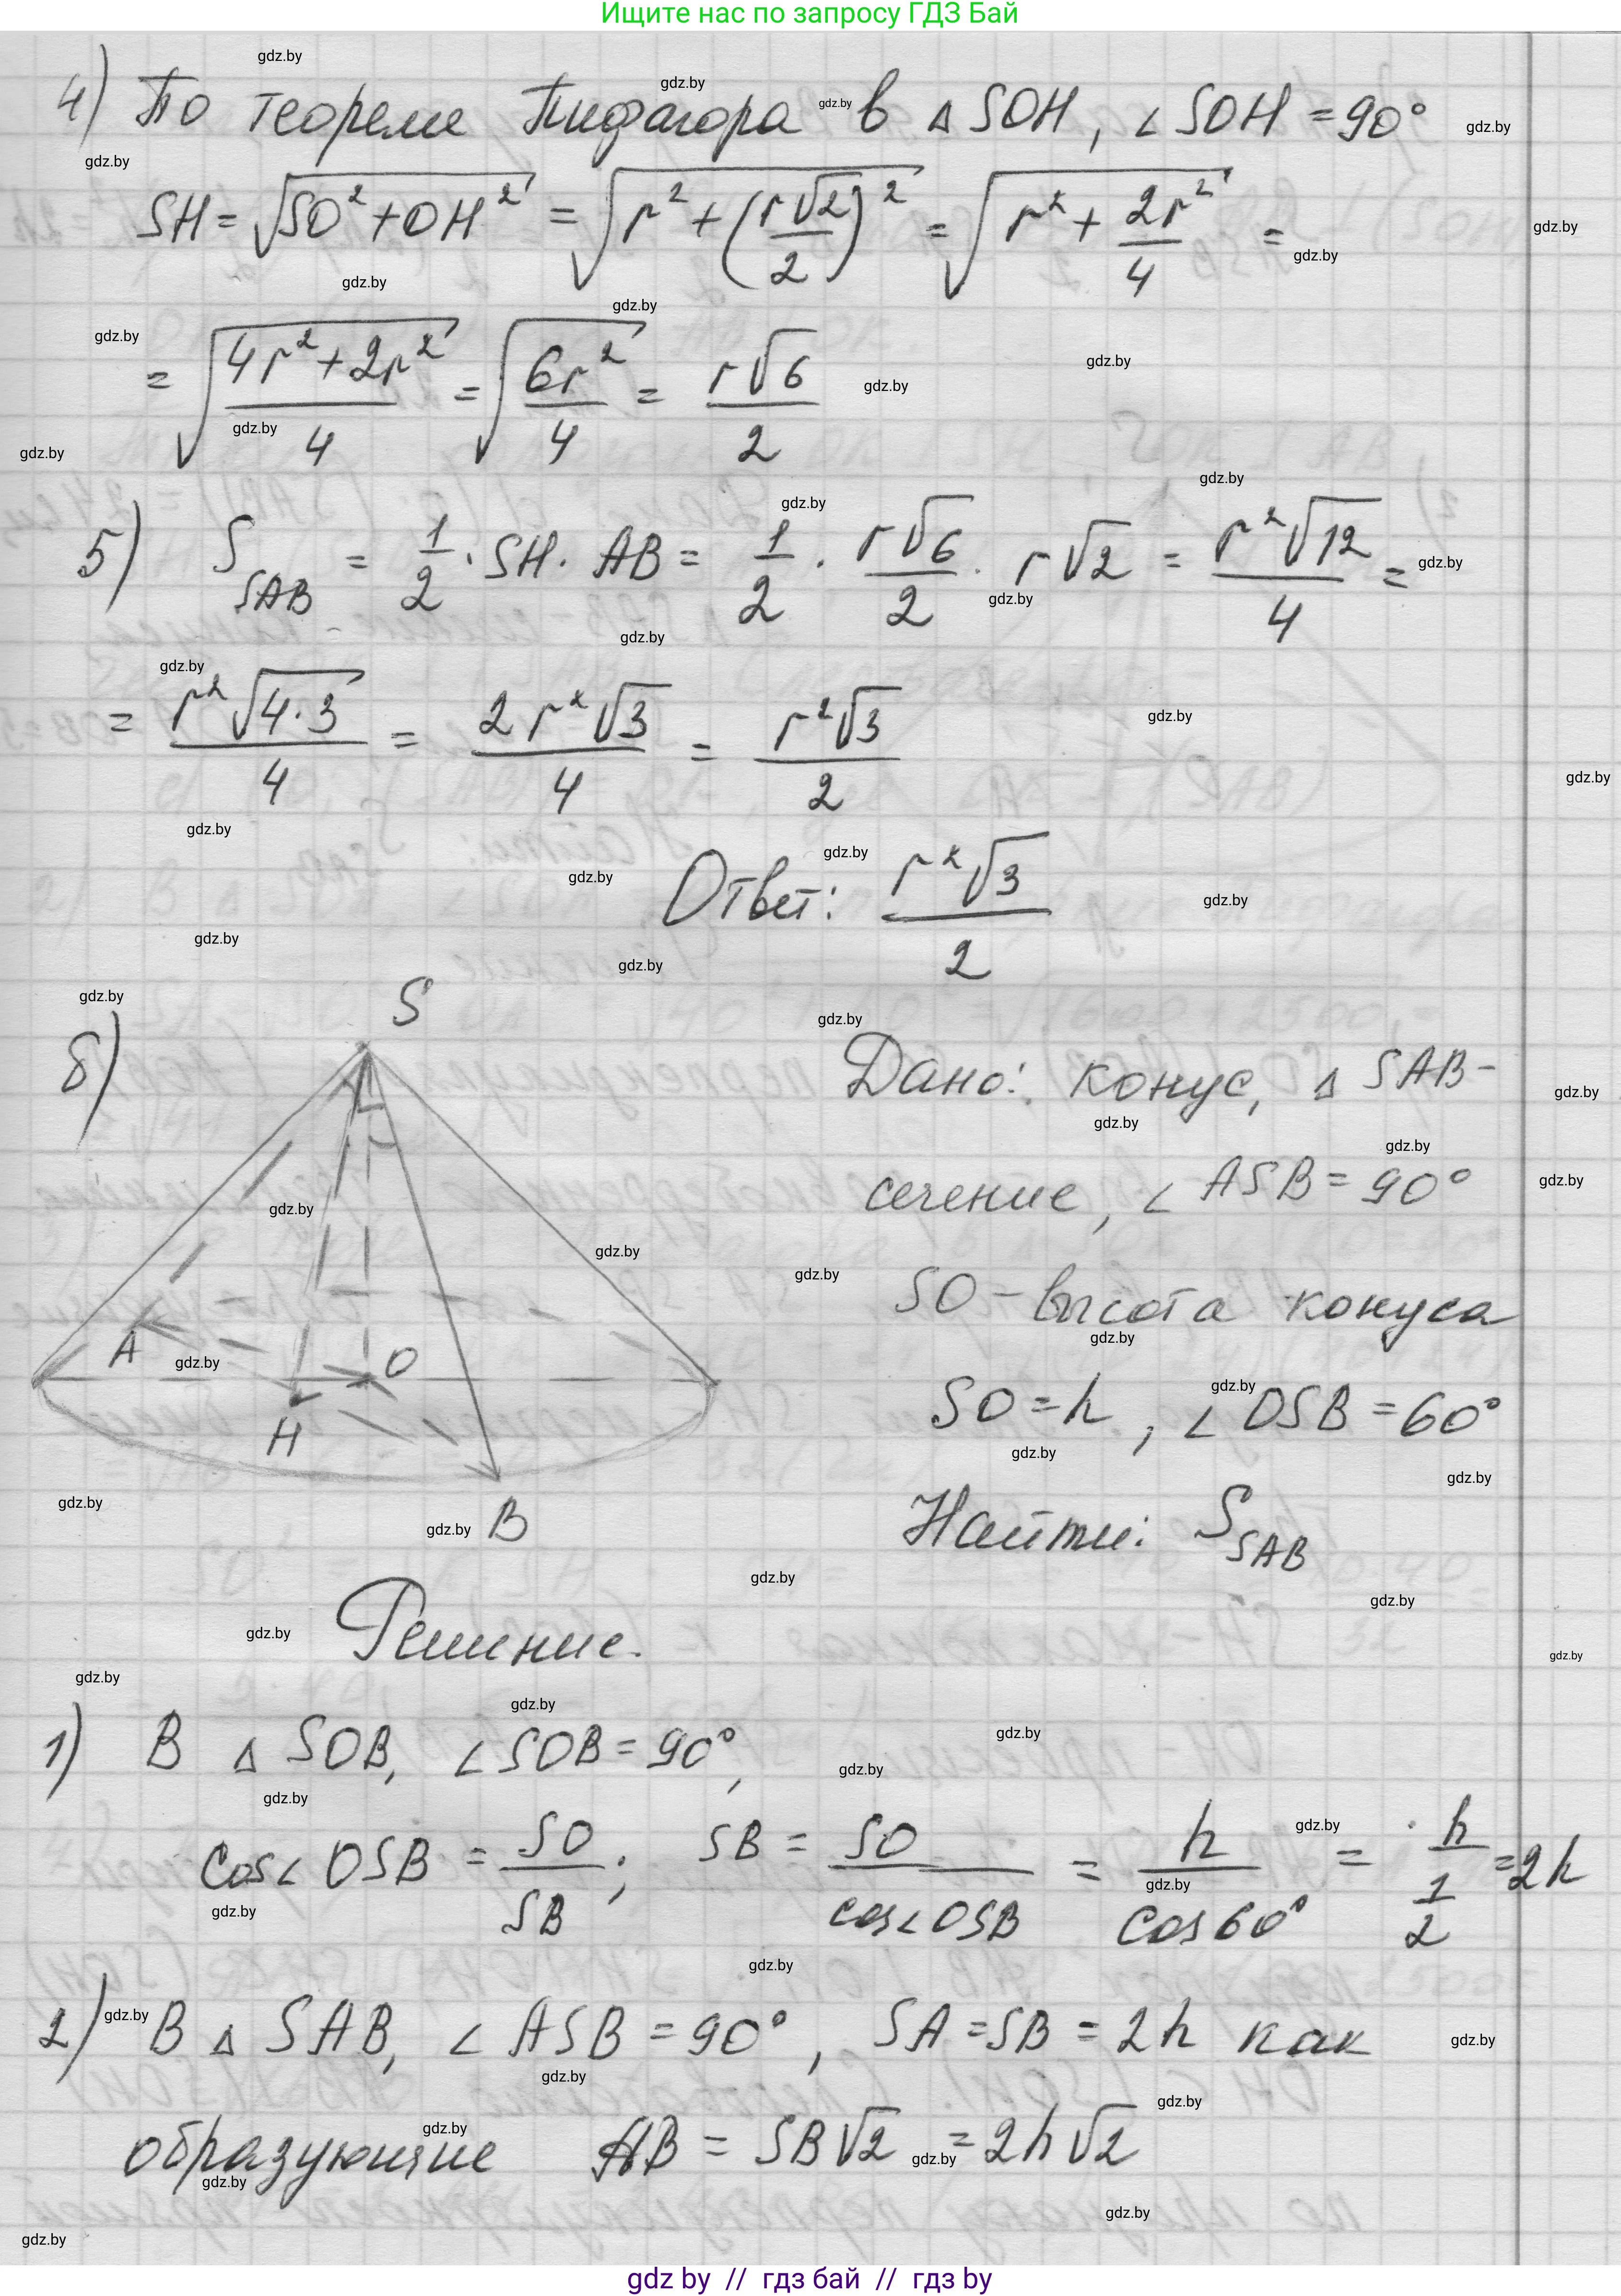 Ищите нас по запросу ГДЗ Бай
4) По теореме Пифагора в △ SOH, ∠ SOH = 90°
SH = √(SO² + OH²) = √(r² + (r√2/2)²) = √(r² + 2r²/4) =
= √((4r² + 2r²)/4) = √(6r²/4) = r√6/2
5) S_SAB = 1/2 · SH · AB = 1/2 · r√6/2 · r√2 = r²√12/4 =
= r²√(4·3)/4 = 2r²√3/4 = r²√3/2
Ответ: r²√3/2
б)
S
A
O
H
B
Дано: конус, △ SAB -
сечение, ∠ ASB = 90°
SO - высота конуса
SO = h, ∠ OSB = 60°
Найти: S_SAB
Решение.
1) В △ SOB, ∠ SOB = 90°,
cos∠ OSB = SO/SB; SB = SO/cos∠OSB = h/cos60° = h/(1/2) = 2h
2) В △ SAB, ∠ ASB = 90°, SA = SB = 2h как
образующие AB = SB√2 = 2h√2
gdz by // гдз бай // гдз by